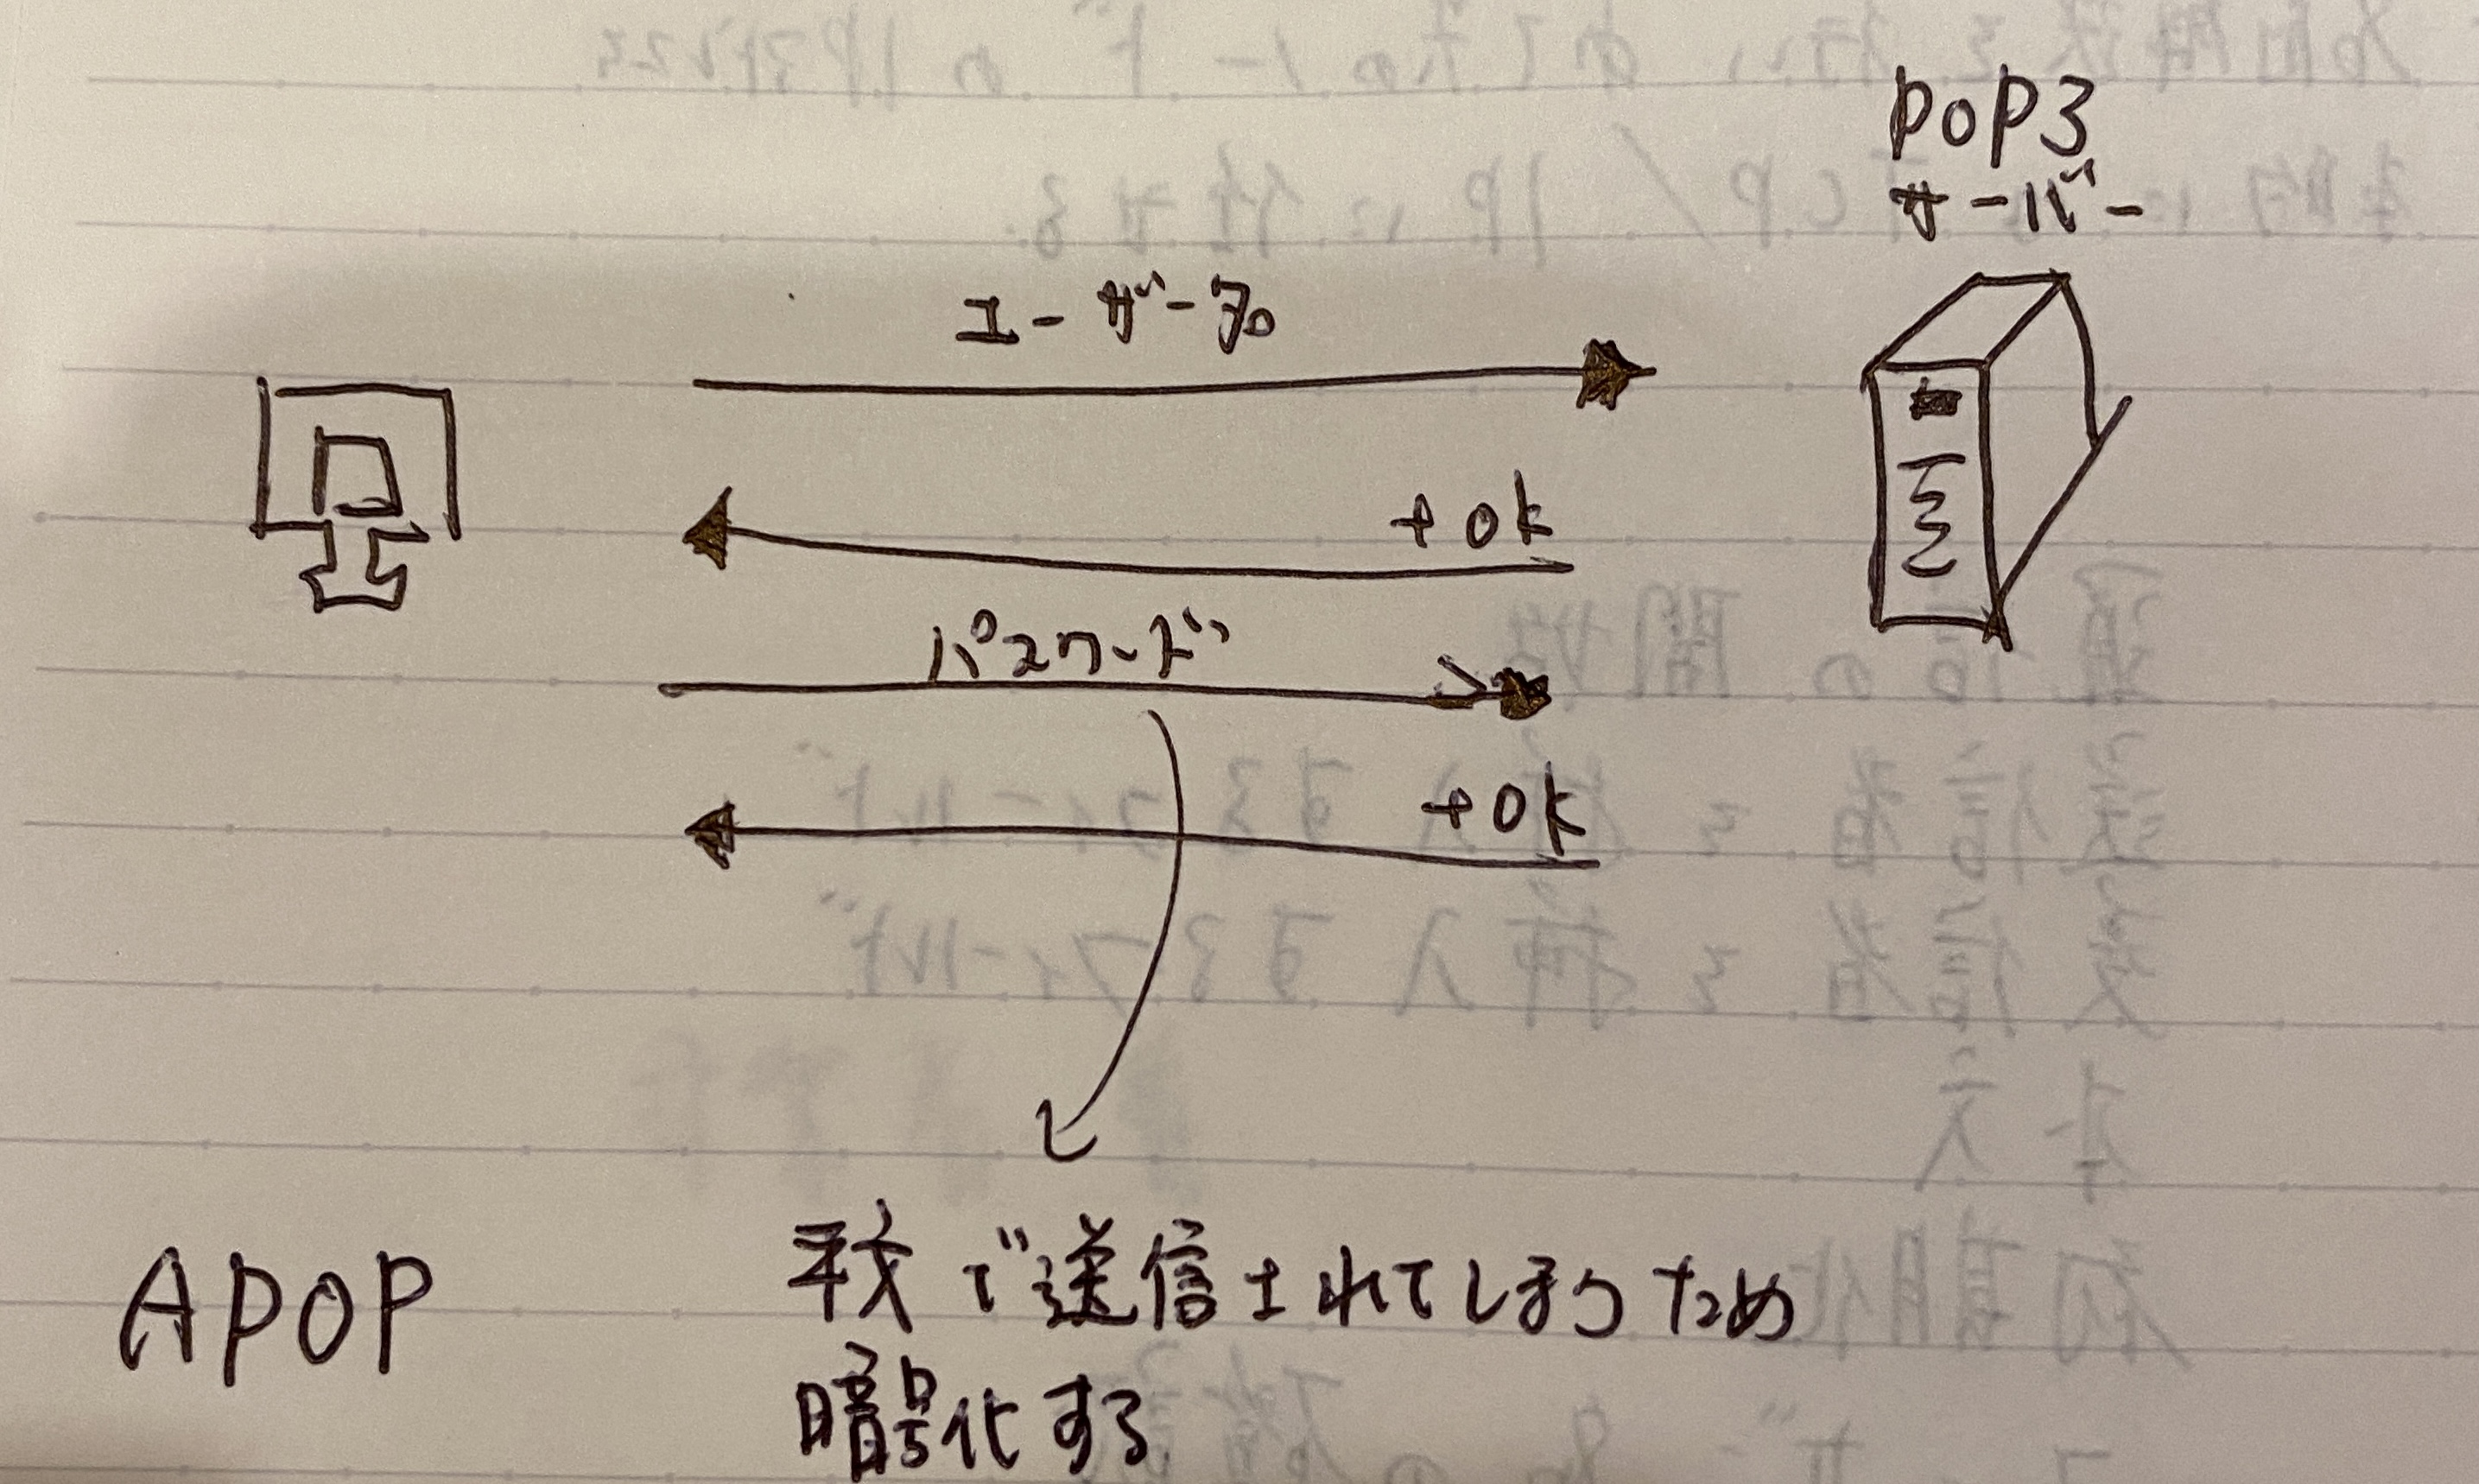 POP3
サーバー
ユーザー名
+ok
パスワード
+ok
APOP
平文で送信されてしまうため
暗号化する